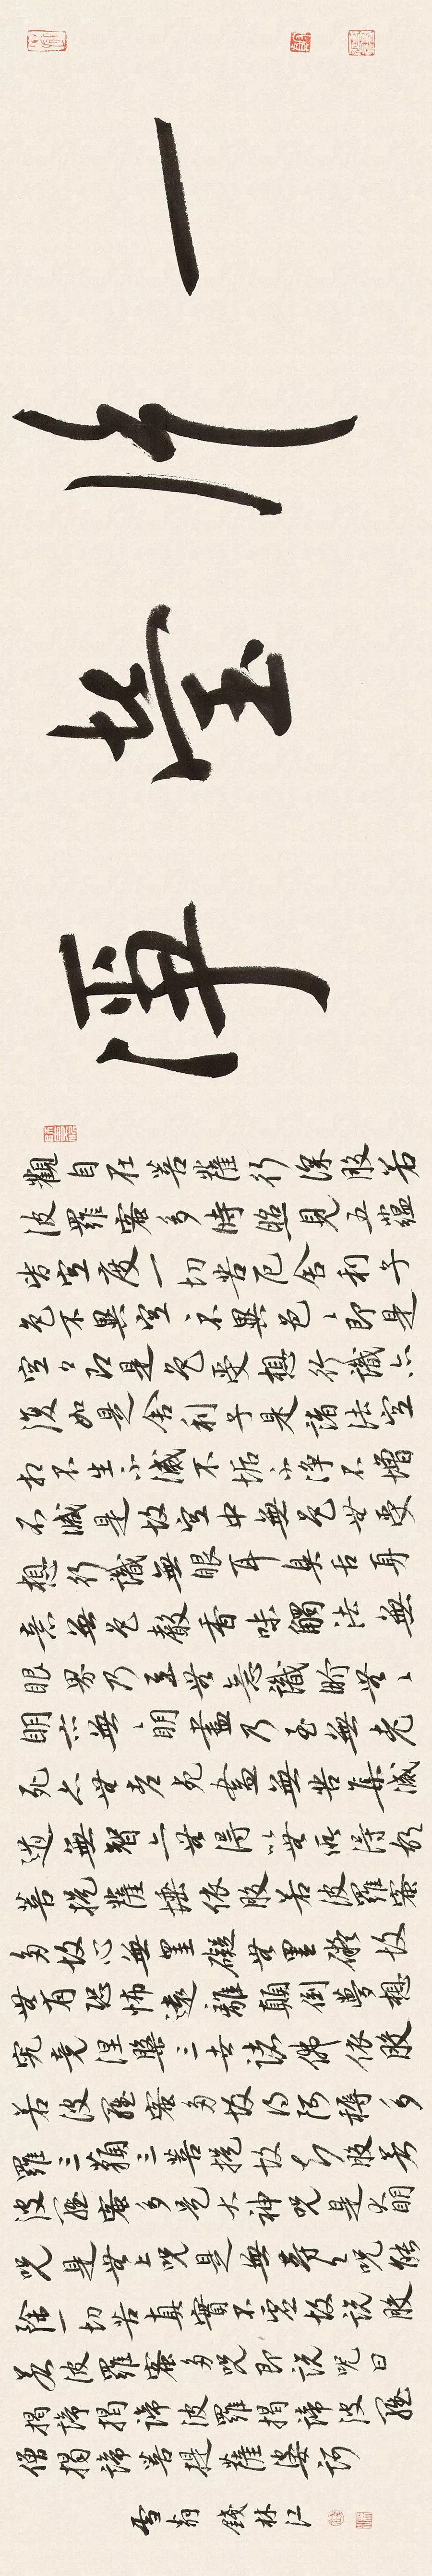 一
禪
觀自在菩薩行深般若
波羅蜜多時照見五蘊
皆空度一切苦厄舍利子
色不異空不異色、即是
空、即是色受想行識亦
復如是舍利子是諸法空
相不生不滅不垢不淨不增
不減是故空中無色無受
想行識無眼耳鼻舌身
意無色聲香味觸法無
眼界乃至無意識界無、
明亦無、明盡乃至無老
死亦無老死盡無苦集滅
道無智亦無得以無所得故
菩提薩埵依般若波羅蜜
多故心無罣礙無罣礙故
無有恐怖遠離顛倒夢想
究竟涅槃三世諸佛依般
若波羅蜜多故得阿耨多
羅三藐三菩提故知般若
波羅蜜多是大神咒是大明
咒是無上咒是無等、咒能
除一切苦真實不虛故說般
若波羅蜜多咒即說咒曰
揭諦揭諦波羅揭諦波羅
僧揭諦菩提薩婆訶
雪翁 錢林江